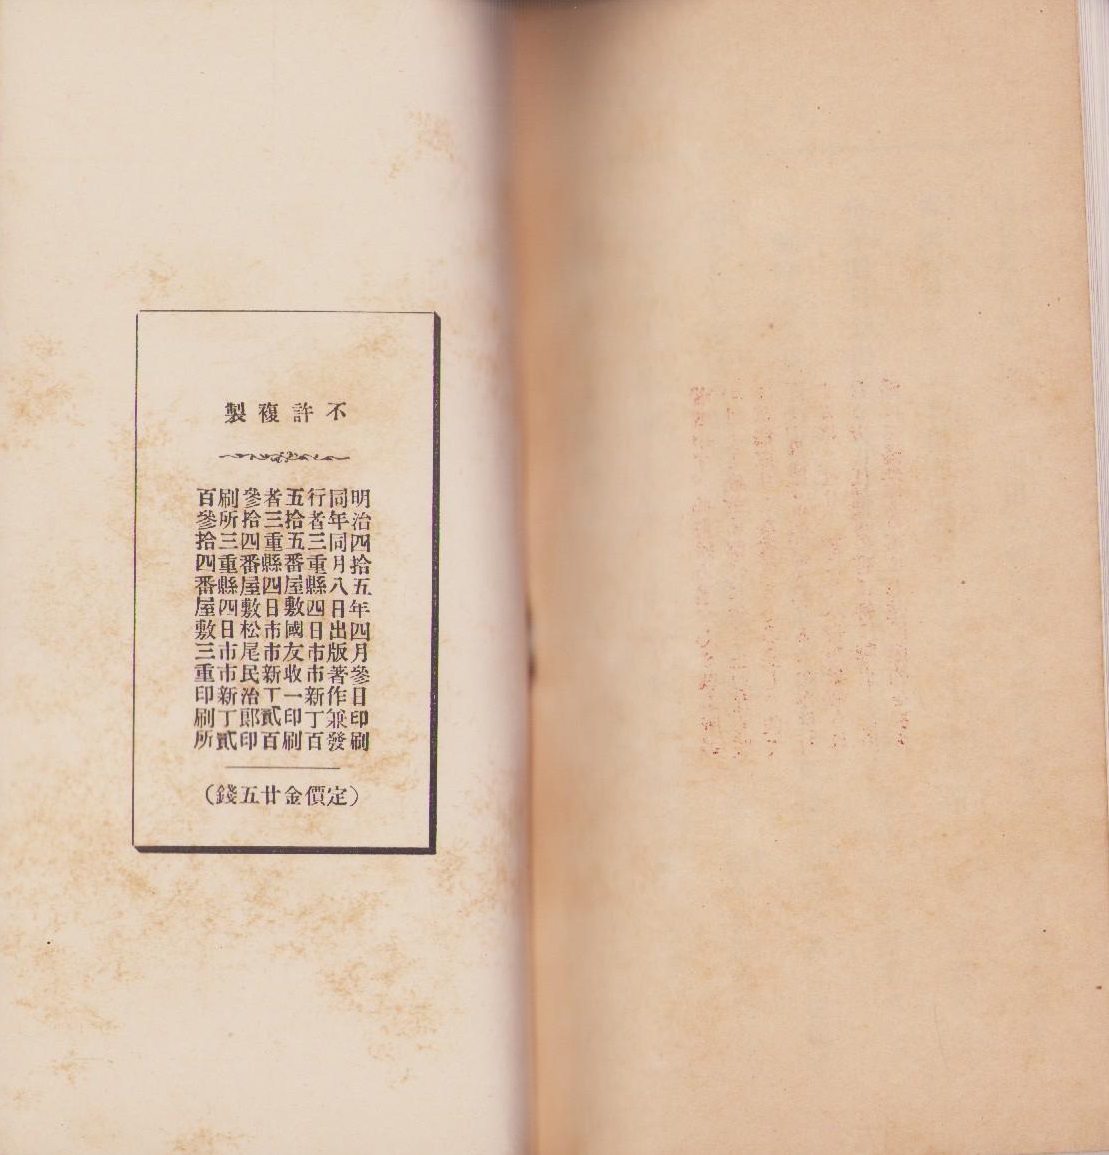 不許複製
明治四拾五年四月參日印刷
同年同月八日出版著作兼發
行者三重縣四日市市新丁百
五拾五番屋敷國友收一印刷
者三重縣四日市市新丁貳百
參拾四番屋敷松尾民治郎印
刷所三重縣四日市市新丁貳
百參拾四番屋敷三重印刷所
（定價金廿五錢）